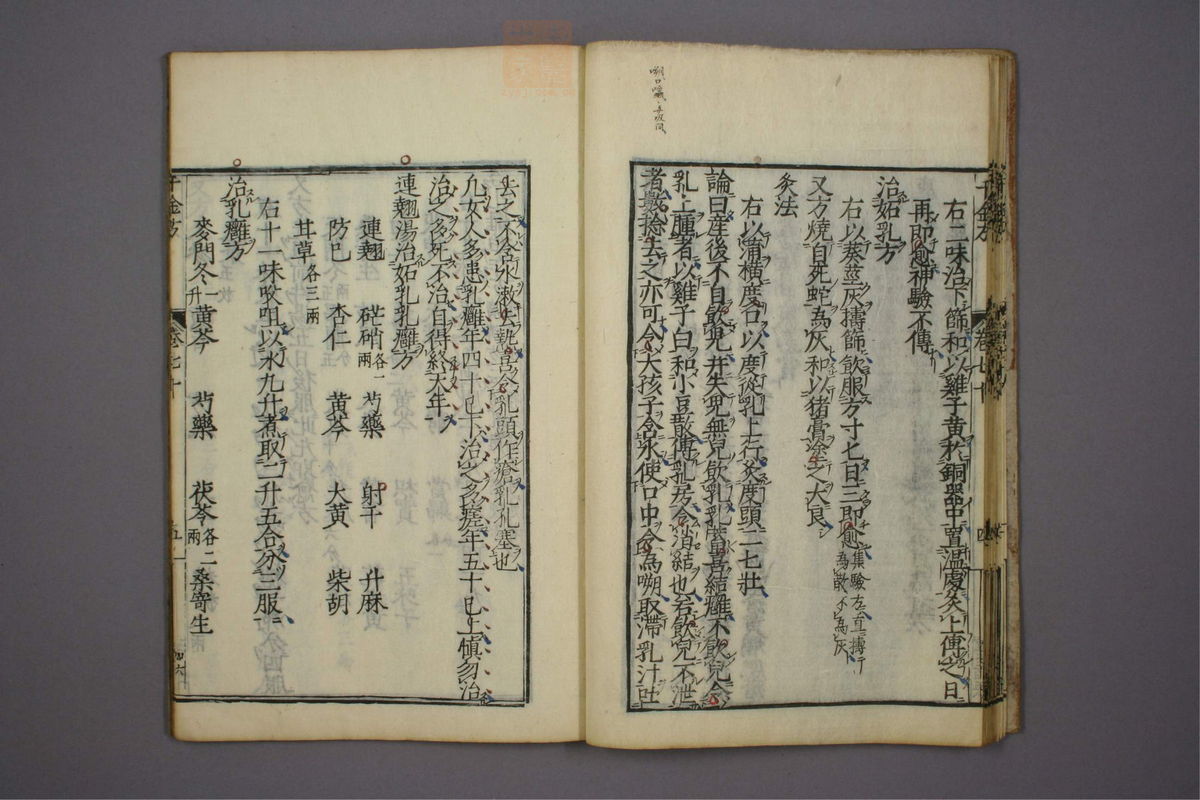 嗍口噏
千金方
卷七十
右二味治下篩和以雞子黃於銅器中置溫處灸上傅之日
再即愈神驗不傳
治妬乳方
右以葵莖灰擣篩飲服方寸匕日三即愈集驗方直擣
為散不為灰
又方燒自死蛇為灰和以猪膏塗之大良
灸法
右以蒲橫度口以度從乳上行灸度頭二七壯
論曰產後不自飲兒并失兒無兒飲乳乳蓄喜結癰不飲兒令
乳上腫者以雞子白和小豆散傅乳房令消結也若飲兒不泄
者數捻去之亦可令大孩子含水使口中冷為嗍取滯乳汁吐
去之不含水漱去熱喜令乳頭作瘡乳孔塞也
凡女人多患乳癰年四十已下治之多瘥年五十已上慎勿治
治之多死不治自得終天年
連翹湯治妬乳乳癰方
連翹 芒硝各一兩 芍藥 射干 升麻
防已 杏仁 黃芩 大黃 柴胡
甘草各三兩
右十一味㕮咀以水九升煮取二升五合分三服
治乳癰方
麥門冬一升 黃芩 芍藥 茯苓各二兩 桑寄生
千金方
卷七十
五一
四六